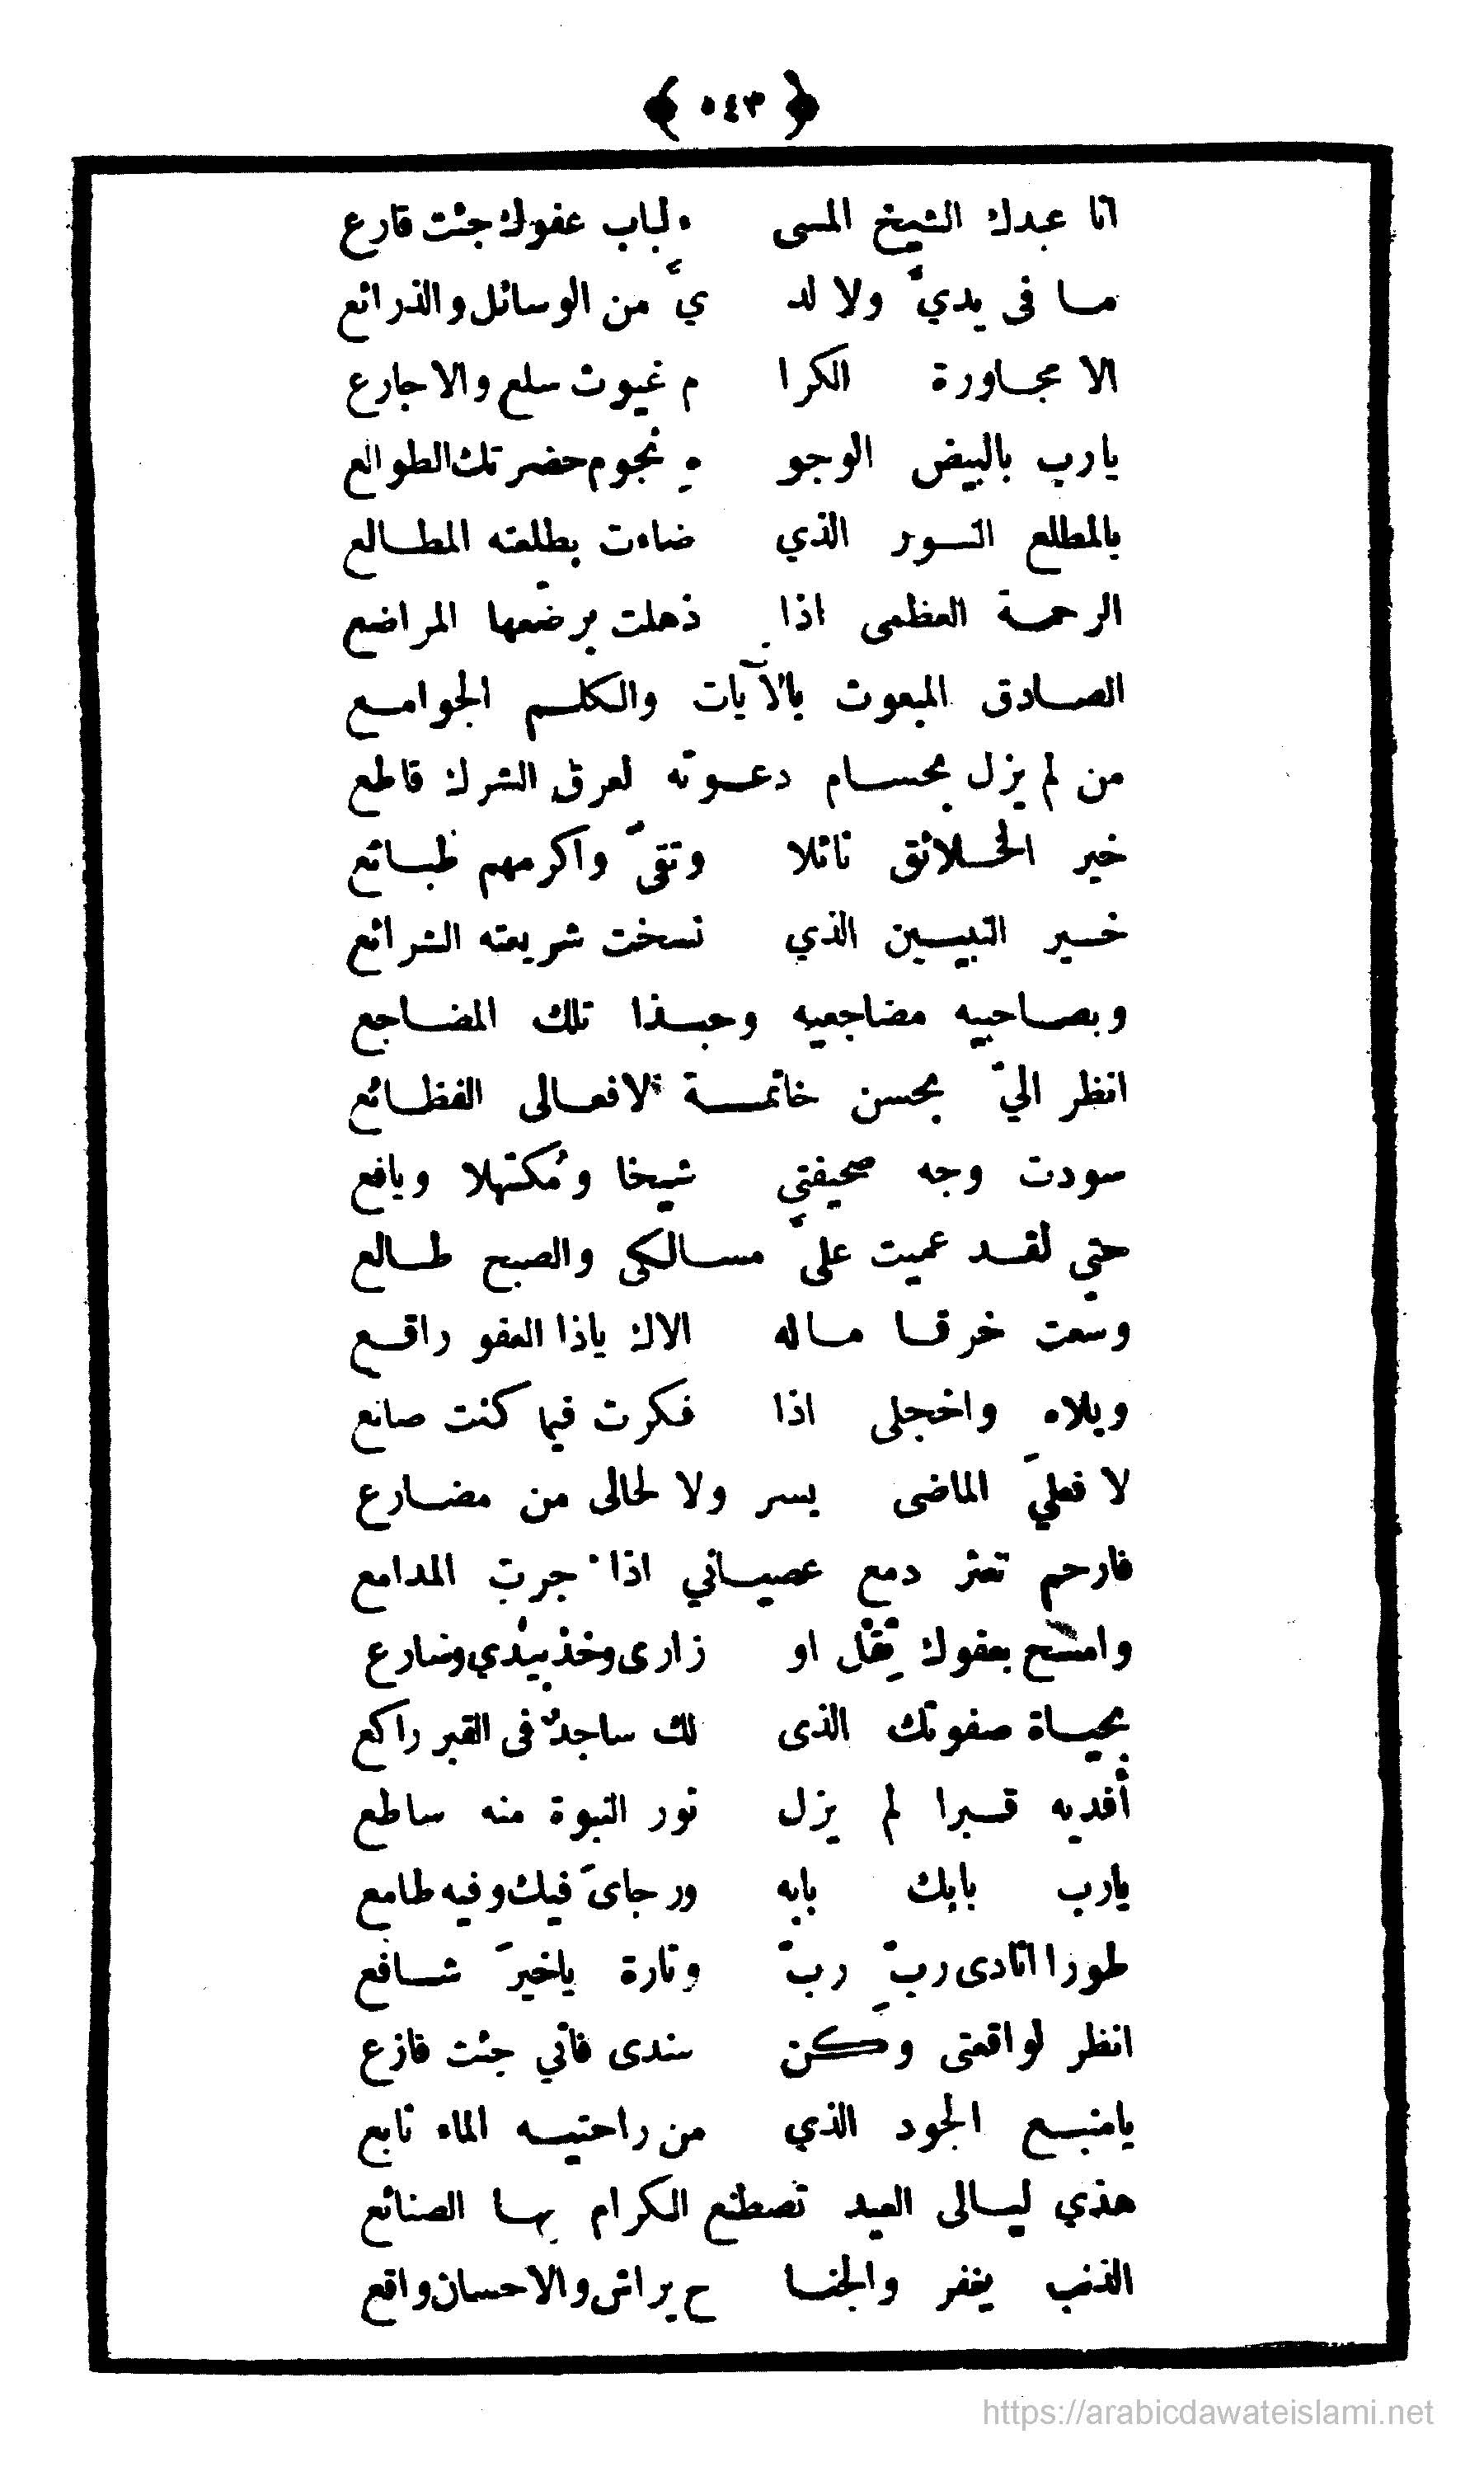 ﴿ ٥٤٣ ﴾
انا عبدك الشيخ المسى ء لباب عفوك جئت قارع
ما فى يديَّ ولا لد يَّ من الوسائل والذرائع
الا مجاورة الكرا م غيوث سلع والاجارع
يارب بالبيض الوجو هِ نجوم حضرتك الطوالع
بالمطلع النور الذي ضاءت بطلعته المطالع
الرحمة العظمى اذا ذهلت برضّعها المراضع
الصادق المبعوث بالآيات والكلم الجوامع
من لم يزل بحسام دعوته لعرق الشرك قاطع
خير الخلائق نائلا وتقىً واكرمهم طبائع
خير النبيين الذي نسخت شريعته الشرائع
وبصاحبيه مضاجعيه وحبذا تلك المضاجع
انظر اليّ بحسن خاتمة لافعالى الفظائع
سودت وجه صحيفتي شيخا ومُكتهلا ويافع
حتي لقد عميت علىَّ مسالكى والصبح طالع
وسعت خرقا ماله الاك ياذا العفو راقع
ويلاه واخجلى اذا فكرت فيما كنت صانع
لا فعليَ الماضى يسر ولا لحالى من مضارع
فارحم تعثر دمع عصياني اذا جرت المدامع
وامسح بعفوك ثِقْل او زارى وخذ بيدي وضارع
بحياة صفوتك الذى لك ساجدٌ فى القبر راكع
أفديه قبرا لم يزل نور النبوة منه ساطع
يارب بابك بابه ورجاىَ فيك وفيه طامع
طورا انادى ربِّ ربِّ وتارة ياخيرَ شافع
انظر لواقعتى وكن سندى فاني جئت فازع
يامنبع الجود الذي من راحتيه الماء نابع
هذي ليالى العيد تصطنع الكرام بها الصنائع
الذنب يغفر والجنا ح يراش والاحسان واقع
https://arabicdawateislami.net